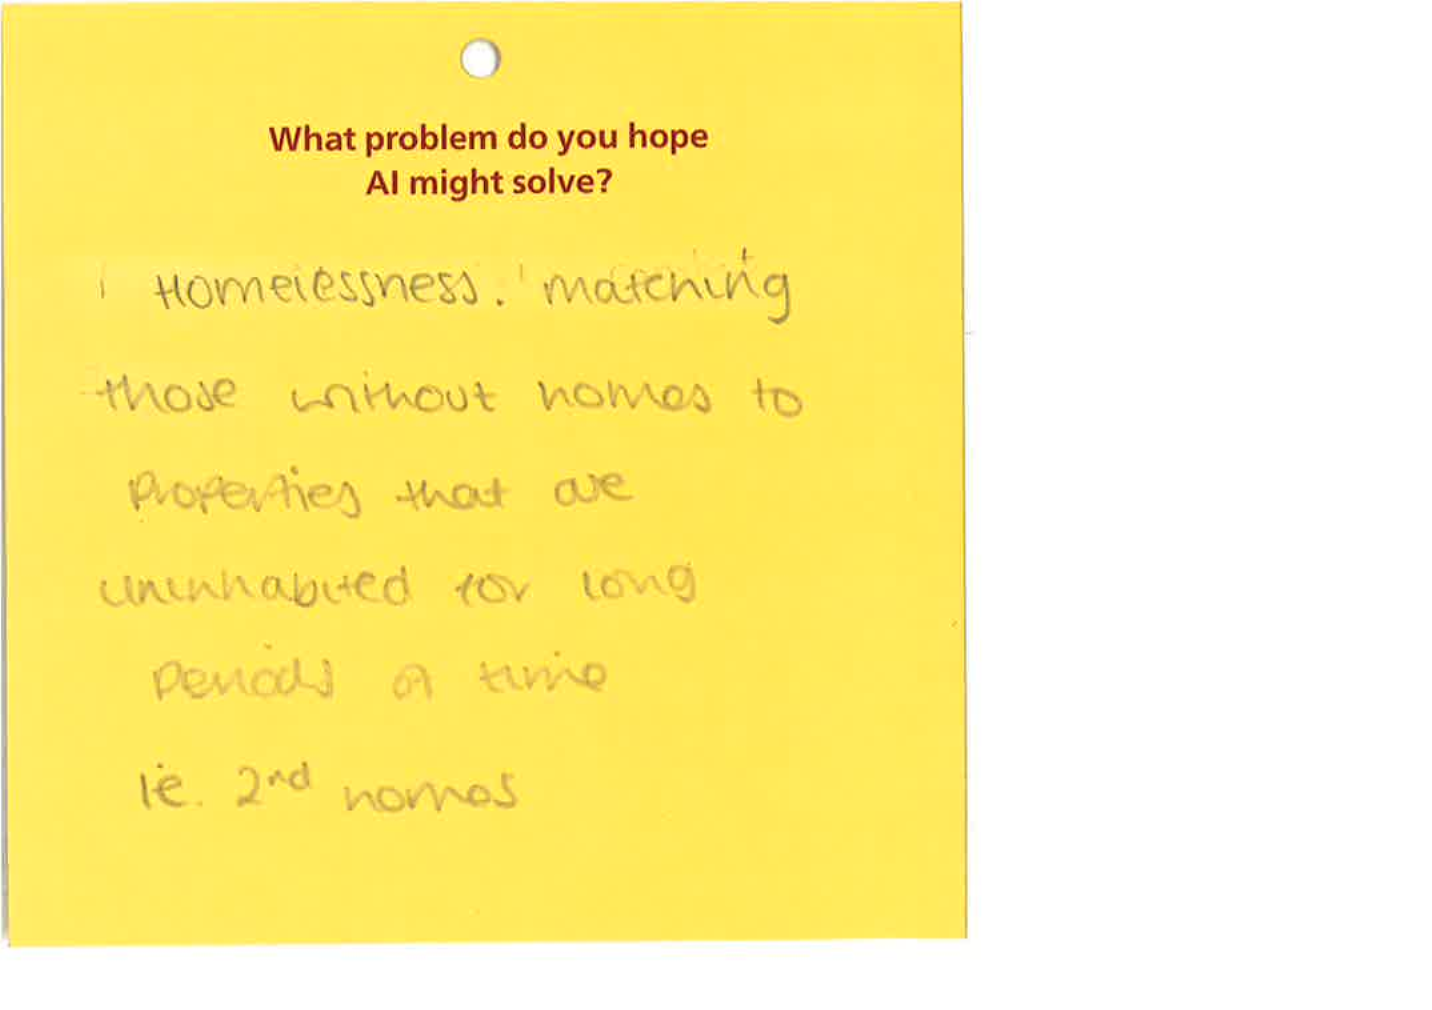 What problem do you hope
AI might solve?
Homelessness. matching
those without homes to
Properties that are
uninhabited for long
Periods of time
ie. 2nd homes